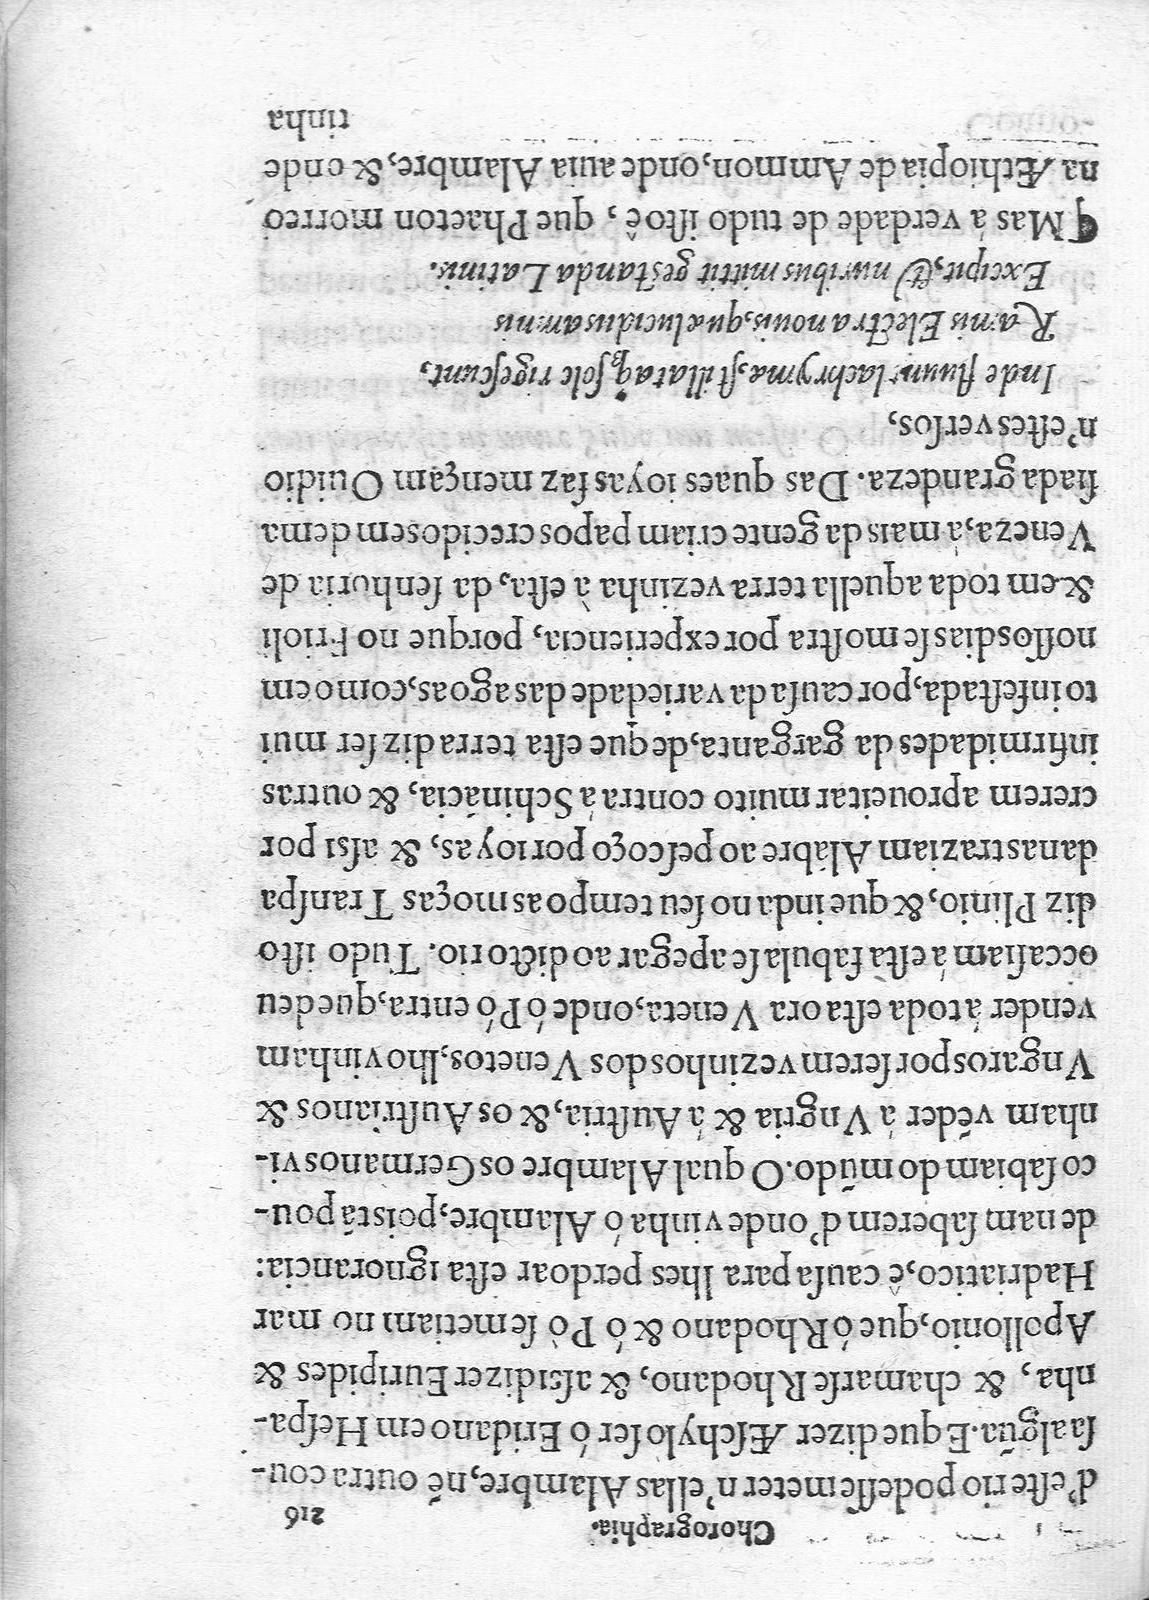 Chorographia. 216
d'este rio podesse meter n'ellas Alambre, nẽ outra cou-
sa algũa. E que dizer Æschylo ser ó Eridano em Hespa-
nha, & chamarse Rhodano, & assi dizer Euripides &
Apollonio, que ó Rhodano & ó Pó se metiam no mar
Hadriatico, ê causa para lhes perdoar esta ignorancia:
de nam saberem d'onde vinha ó Alambre, pois tã pou-
co sabiam do mũdo. O qual Alambre os Germanos vi-
nham vẽder á Vngria & á Austria, & os Austrianos &
Vngaros por serem vezinhos dos Venetos, lho vinham
vender á toda esta ora Veneta, onde ó Pó entra, que deu
occasiam á esta fabula se apegar ao dicto rio. Tudo isto
diz Plinio, & que inda no seu tempo as moças Transpa
danas traziam Alãbre ao pescoço por ioyas, & assi por
crerem aproueitar muito contra á Schinácia, & outras
infirmidades da garganta, de que esta terra diz ser mui
to infestada, por causa da variedade das agoas, como em
nossos dias se mostra por experiencia, porque no Frioli
& em toda aquella terra vezinha à esta, da senhoria de
Veneza, á mais da gente criam papos crecidos em dema
siada grandeza. Das quaes ioyas faz mençam Ouidio
n'estes versos,
Inde fluunt lachrymæ, stillataq; sole rigescunt,
Ramis Electra nouis, quæ lucidus amnis
Excipit, & nuribus mittit gestanda Latinis.
¶ Mas á verdade de tudo isto ê, que Phaeton morreo
na Æthiopia de Ammon, onde auia Alambre, & onde
tinha